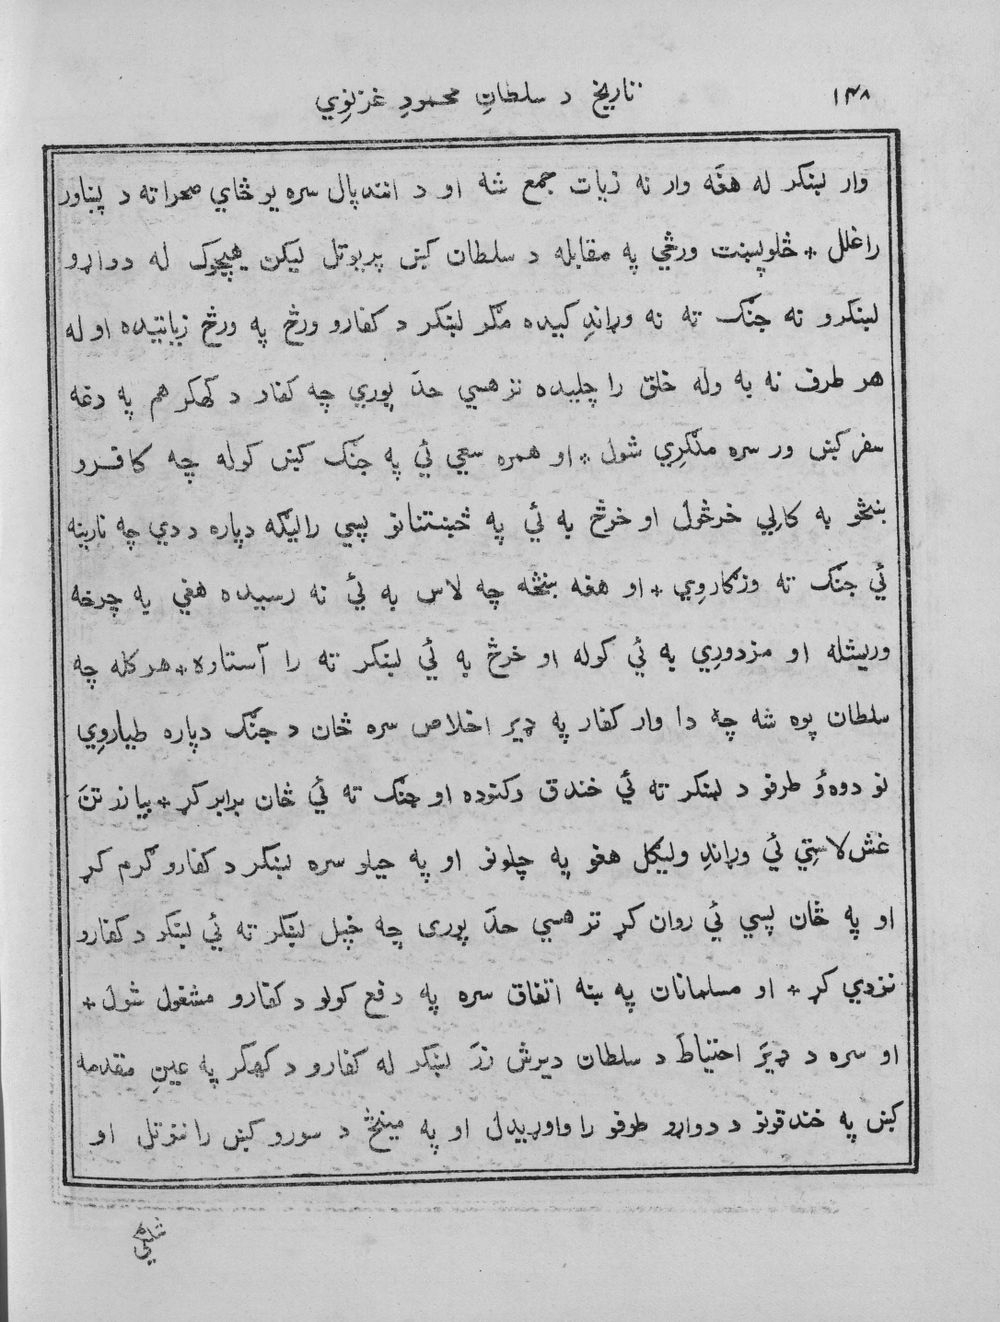 ١٤٨ تاريخ د سلطانِ محمودِ غزنوِي
وار لښکر له هغَه وار نه زيات جمع شه او د انندپال سره يو ځاي صحرا ته د پښاور
راغلل + څلويښت ورځي په مقابله د سلطان کښ پريوتل ليکن هيچوک له دواړو
لښکرو نه جنګ ته نه وړاندِ کېيده مګر لښکر د کفارو ورځ په ورځ زياتيده او له
هر طرف نه به وله خلق را چليده تر هسي حدَ پوري چه کفار د کهکر هم په دغه
سفر کښ ور سره ملګرِي شول + او همره سعي ئي په جنګ کښ کوله چه کافرو
ښځو به کالي خرڅول او خرڅ به ئي په څښتنانو پسي راليګه دپاره د دي چه نارينه
ئي جنګ ته وزګاروِي + او هغه ښځه چه لاس به ئي نه رسيده هغي به چرخه
وريشله او مزدورِي به ئي کوله او خرڅ به ئي لښکر ته را آستاوه + هر کله چه
سلطان پوه شه چه دا وار کفار په ډير اخلاص سره ځان د جنګ دپاره طياروِي
نو دوه ؤ طرفو د لښکر ته ئي خندق وکنوده او جنګ ته ئي ځان برابر کړ + بيا زر تنَ
غش لاستِي ئي وړاندِ وليګل هغو په چلونو او په حيلو سره لښکر د کفارو ګرم کړ
او په ځان پسي ئي روان کړ تر هسي حدَ پوری چه خپل لښکر ته ئي لښکر د کفارو
نزدي کړ + او مسلمانان په ښه اتفاق سره په دفع کولو د کفارو مشغول شول +
او سره د ډيرَ احتياطَ د سلطان ديرش زرَ لښکر له کفارو د کهکر په عينِ مقدمه
کښ په خندقونو د دواړو طرفو را واوړيدل او په مينځ د سورو کښ را ننوتل او